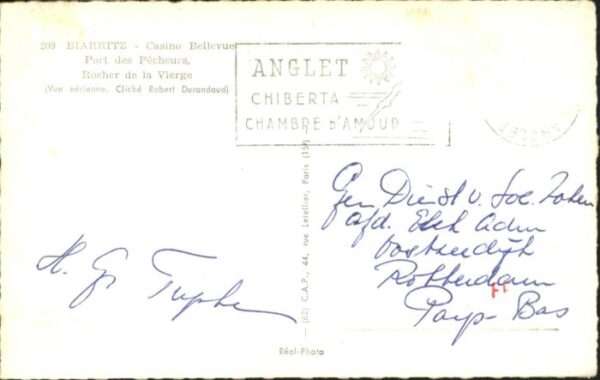 209 BIARRITZ - Casino Bellevue
Port des Pêcheurs,
Rocher de la Vierge
(Vue aérienne. Cliché Robert Durandaud)
ANGLET
CHIBERTA
CHAMBRE D'AMOUR
Gem Dienst v. Soc. Zaken
afd. Adm
Rotterdam
Pays-Bas
H. Gr
— (62) C.A.P., 44, rue Letellier, Paris (15e)
Réel-Photo